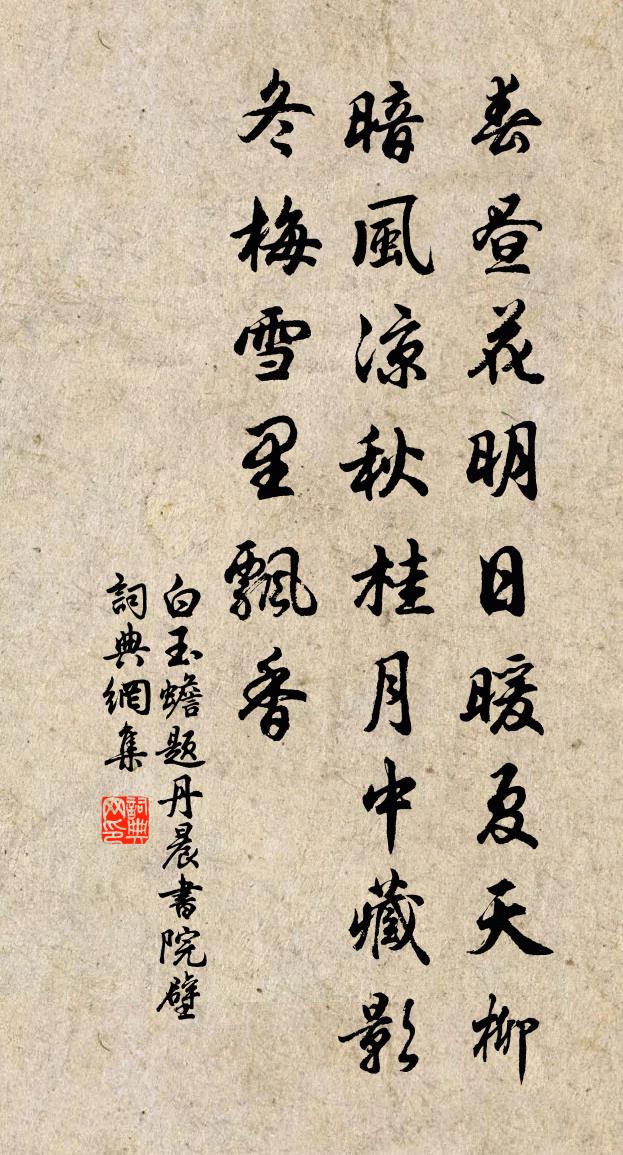 春昼花明日暖夏天柳
暗風凉秋桂月中藏影
冬梅雪里飄香
白玉蟾題丹晨書院壁
詞典網集
詞典
网印